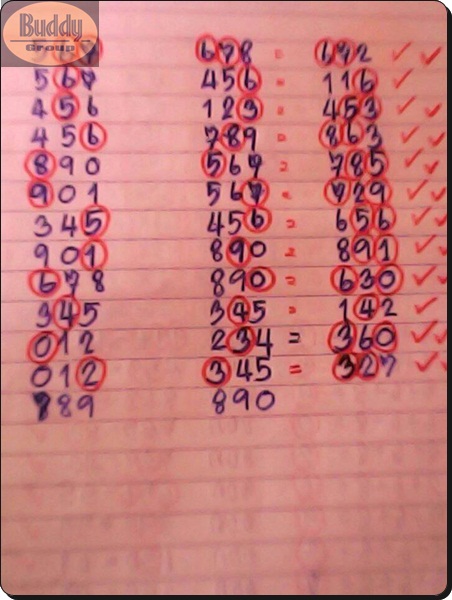 Buddy
Group
587 678 = 672 ✓ ✓
567 456 = 116 ✓
456 123 = 453 ✓ ✓
456 789 = 863 ✓ ✓
890 567 = 785 ✓ ✓
901 567 = 729 ✓ ✓
345 456 = 656 ✓ ✓
901 890 = 891 ✓ ✓
678 890 = 630 ✓ ✓
345 345 = 142 ✓ ✓
012 234 = 360 ✓ ✓
012 345 = 327 ✓ ✓
789 890